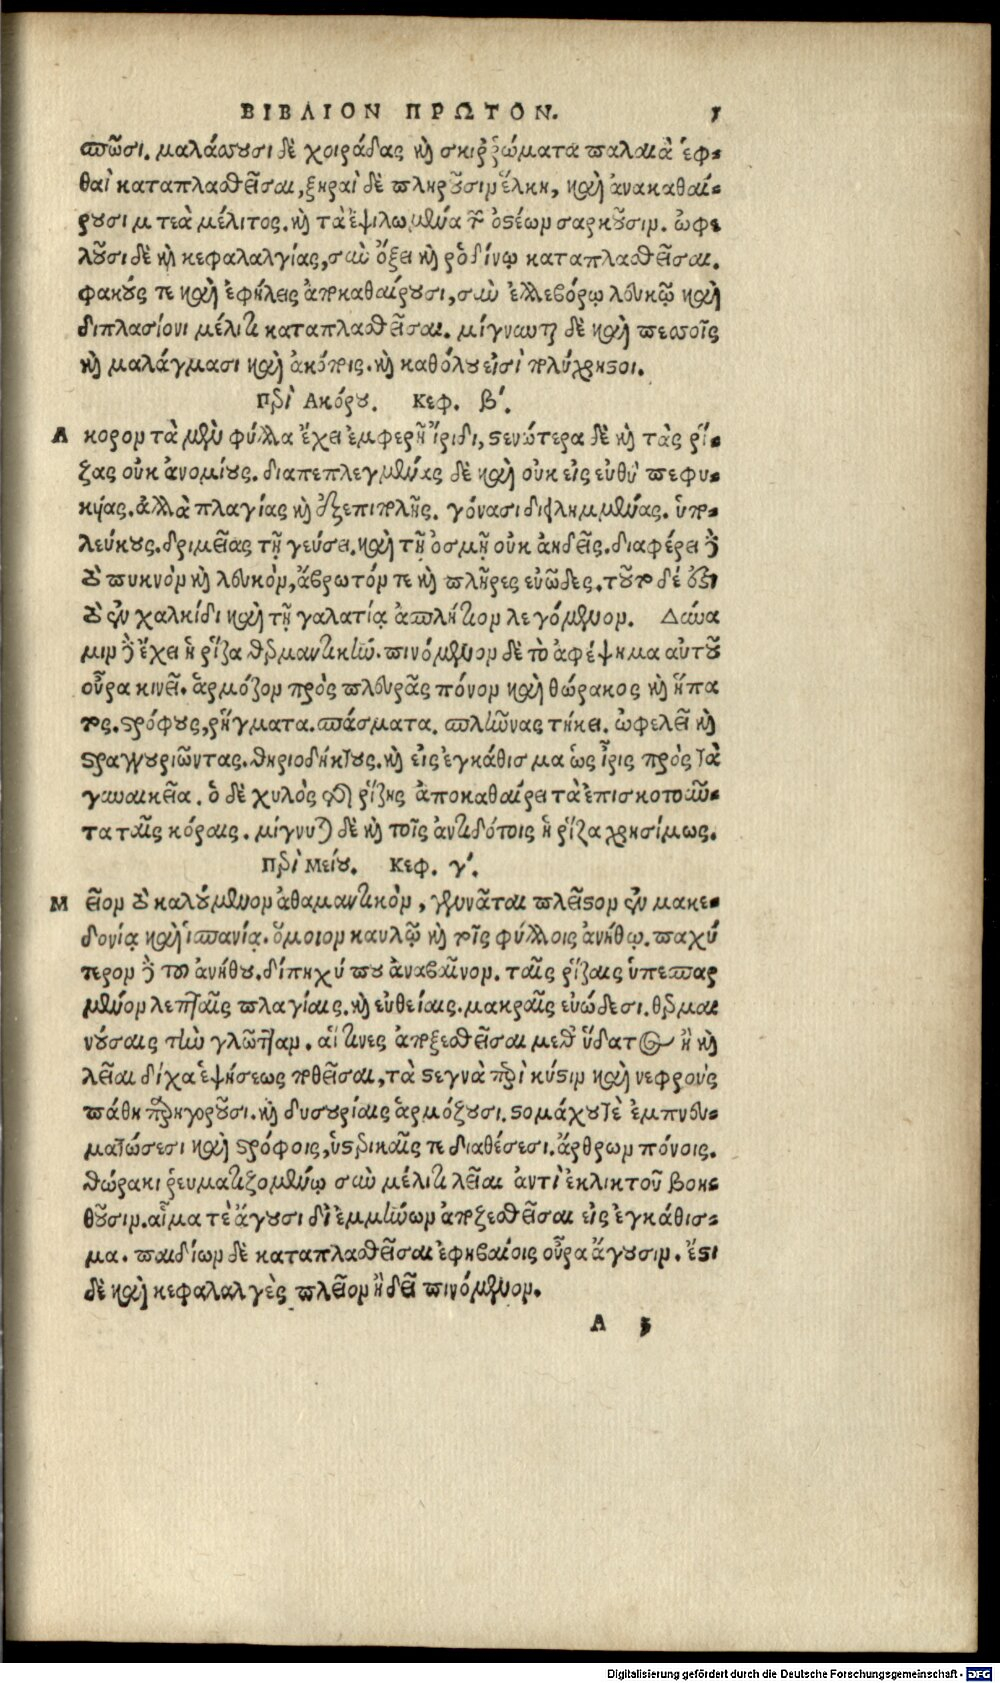 ΒΙΒΛΙΟΝ ΠΡΩΤΟΝ. 3
σπῶσι. μαλάσσουσι δὲ χοιράδας καὶ σκιῤῥώματα παλαιὰ ἑφ-
θαὶ καταπλασθεῖσαι, ξηραὶ δὲ πληροῦσιν ἕλκη, καὶ ἀνακαθαί-
ρουσι μετὰ μέλιτος. καὶ τὰ ἐψιλωμένα τῶν ὀστέων σαρκοῦσιν. ὠφε-
λοῦσι δὲ καὶ κεφαλαλγίας, σὺν ὄξει καὶ ῥοδίνῳ καταπλασθεῖσαι.
φακούς τε καὶ ἐφήλεις ἀποκαθαίρουσι, σὺν ἐλλεβόρῳ λευκῷ καὶ
διπλασίονι μέλιτι καταπλασθεῖσαι. μίγνυνται δὲ καὶ πεσσοῖς
καὶ μαλάγμασι καὶ ἀκόποις. καὶ καθόλου εἰσὶ πολύχρηστοι.
Περὶ Ακόρου. Κεφ. β΄.
Ακορον τὰ μὲν φύλλα ἔχει ἐμφερῆ ἴριδι, στενώτερα δὲ καὶ τὰς ῥί-
ζας οὐκ ἀνομίους. διαπεπλεγμένας δὲ καὶ οὐκ εἰς εὐθὺ πεφυ-
κυίας. ἀλλὰ πλαγίας καὶ ἐξεπιπολῆς. γόνασι διειλημμένας. ὑπο-
λεύκους. δριμείας τῇ γεύσει. καὶ τῇ ὀσμῇ οὐκ ἀηδεῖς. διαφέρει δὲ
τὸ πυκνὸν καὶ λευκὸν, ἄβρωτόν τε καὶ πλῆρες εὐῶδες. τοῦτο δέ ἐστι
τὸ ἐν χαλκίδι καὶ τῇ γαλατίᾳ ἀσπλήτιον λεγόμενον. Δύνα
μιν δὲ ἔχει ἡ ῥίζα θερμαντικὴν. πινόμενον δὲ τὸ ἀφέψημα αὐτοῦ
οὖρα κινεῖ. ἁρμόζον πρὸς πλευρᾶς πόνον καὶ θώρακος καὶ ἥπα
τος. στρόφους, ῥήγματα. σπάσματα. σπλῆνας τήκει. ὠφελεῖ καὶ
στραγγουριῶντας. θηριοδήκτους. καὶ εἰς ἐγκάθισμα ὡς ἶρις πρὸς τὰ
γυναικεῖα. ὁ δὲ χυλὸς τῆς ῥίζης ἀποκαθαίρει τὰ ἐπισκοτοῦν-
τα ταῖς κόραις. μίγνυται δὲ καὶ τοῖς ἀντιδότοις ἡ ῥίζα χρησίμως.
Περὶ Μείου. Κεφ. γ΄.
Μεῖον τὸ καλούμενον ἀθαμαντικὸν, γεννᾶται πλεῖστον ἐν μακε-
δονίᾳ καὶ ἱσπανίᾳ. ὅμοιον καυλῷ καὶ τοῖς φύλλοις ἀνήθῳ. παχύ
τερον δὲ τοῦ ἀνήθου. δίπηχύ που ἀναβαῖνον. ταῖς ῥίζαις ὑπεσπαρ
μένον λεπταῖς πλαγίαις. καὶ εὐθείαις. μακραῖς εὐώδεσι. θερμαι
νούσαις τὴν γλῶτταν. αἵτινες ἀποζεσθεῖσαι μεθ' ὕδατος ἢ καὶ
λεῖαι δίχα ἑψήσεως ποθεῖσαι, τὰ στεγνὰ περὶ κύστιν καὶ νεφροὺς
πάθη παρηγοροῦσι. καὶ δυσουρίαις ἁρμόζουσι. στομάχου τὲ ἐμπνευ-
ματώσεσι καὶ στρόφοις, ὑστερικαῖς τε διαθέσεσι. ἄρθρων πόνοις.
θώρακι ῥευματιζομένῳ σὺν μέλιτι λεῖαι ἀντὶ ἐκλικτοῦ βοη-
θοῦσιν. αἷμα τὲ ἄγουσι δι' ἐμμήνων ἀποζεσθεῖσαι εἰς ἐγκάθισ-
μα. παιδίων δὲ καταπλασθεῖσαι ἐφηβαίοις οὖρα ἄγουσιν. ἔστι
δὲ καὶ κεφαλαλγὲς πλεῖον ἢ δεῖ πινόμενον.
A 3
Digitalisierung gefördert durch die Deutsche Forschungsgemeinschaft - DFG